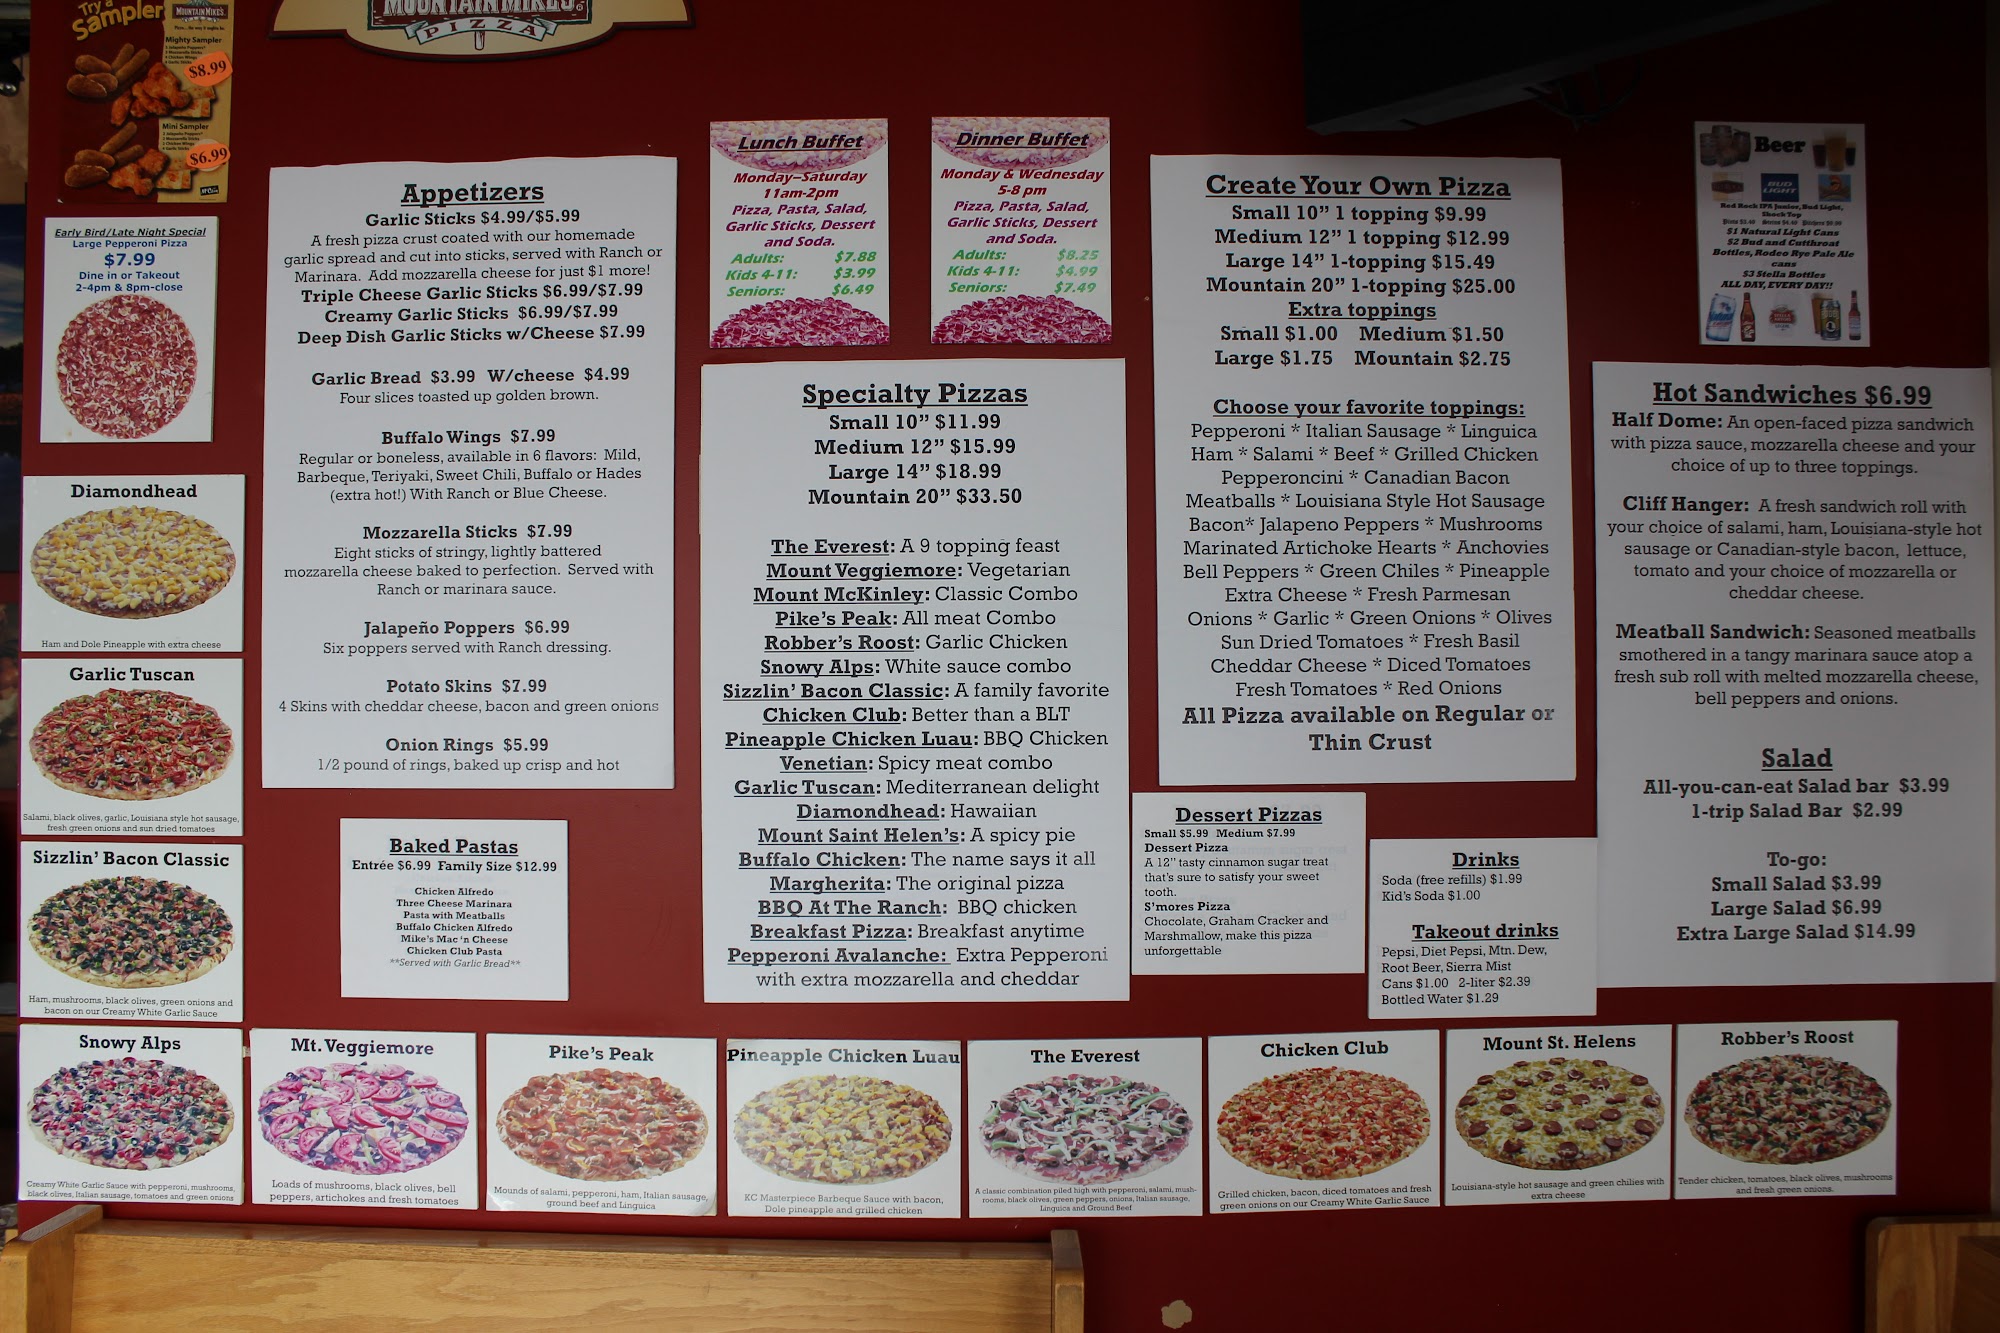 Try a
Sampler
MOUNTAIN MIKE'S
Mighty Sampler
$8.99
Mini Sampler
$6.99
MOUNTAIN MIKE'S
PIZZA
Early Bird/Late Night Special
Large Pepperoni Pizza
$7.99
Dine in or Takeout
2-4pm & 8pm-close
Appetizers
Garlic Sticks $4.99/$5.99
A fresh pizza crust coated with our homemade
garlic spread and cut into sticks, served with Ranch or
Marinara. Add mozzarella cheese for just $1 more!
Triple Cheese Garlic Sticks $6.99/$7.99
Creamy Garlic Sticks $6.99/$7.99
Deep Dish Garlic Sticks w/Cheese $7.99
Garlic Bread $3.99 W/cheese $4.99
Four slices toasted up golden brown.
Buffalo Wings $7.99
Regular or boneless, available in 6 flavors: Mild,
Barbeque, Teriyaki, Sweet Chili, Buffalo or Hades
(extra hot!) With Ranch or Blue Cheese.
Mozzarella Sticks $7.99
Eight sticks of stringy, lightly battered
mozzarella cheese baked to perfection. Served with
Ranch or marinara sauce.
Jalapeño Poppers $6.99
Six poppers served with Ranch dressing.
Potato Skins $7.99
4 Skins with cheddar cheese, bacon and green onions
Onion Rings $5.99
1/2 pound of rings, baked up crisp and hot
Baked Pastas
Entrée $6.99 Family Size $12.99
Chicken Alfredo
Three Cheese Marinara
Pasta with Meatballs
Buffalo Chicken Alfredo
Mike's Mac 'n Cheese
Chicken Club Pasta
**Served with Garlic Bread**
Lunch Buffet
Monday-Saturday
11am-2pm
Pizza, Pasta, Salad,
Garlic Sticks, Dessert
and Soda.
Adults: $7.88
Kids 4-11: $3.99
Seniors: $6.49
Dinner Buffet
Monday & Wednesday
5-8 pm
Pizza, Pasta, Salad,
Garlic Sticks, Dessert
and Soda.
Adults: $8.25
Kids 4-11: $4.99
Seniors: $7.49
Specialty Pizzas
Small 10" $11.99
Medium 12" $15.99
Large 14" $18.99
Mountain 20" $33.50
The Everest: A 9 topping feast
Mount Veggiemore: Vegetarian
Mount McKinley: Classic Combo
Pike's Peak: All meat Combo
Robber's Roost: Garlic Chicken
Snowy Alps: White sauce combo
Sizzlin' Bacon Classic: A family favorite
Chicken Club: Better than a BLT
Pineapple Chicken Luau: BBQ Chicken
Venetian: Spicy meat combo
Garlic Tuscan: Mediterranean delight
Diamondhead: Hawaiian
Mount Saint Helen's: A spicy pie
Buffalo Chicken: The name says it all
Margherita: The original pizza
BBQ At The Ranch: BBQ chicken
Breakfast Pizza: Breakfast anytime
Pepperoni Avalanche: Extra Pepperoni
with extra mozzarella and cheddar
Create Your Own Pizza
Small 10" 1 topping $9.99
Medium 12" 1 topping $12.99
Large 14" 1-topping $15.49
Mountain 20" 1-topping $25.00
Extra toppings
Small $1.00 Medium $1.50
Large $1.75 Mountain $2.75
Choose your favorite toppings:
Pepperoni * Italian Sausage * Linguica
Ham * Salami * Beef * Grilled Chicken
Pepperoncini * Canadian Bacon
Meatballs * Louisiana Style Hot Sausage
Bacon* Jalapeno Peppers * Mushrooms
Marinated Artichoke Hearts * Anchovies
Bell Peppers * Green Chiles * Pineapple
Extra Cheese * Fresh Parmesan
Onions * Garlic * Green Onions * Olives
Sun Dried Tomatoes * Fresh Basil
Cheddar Cheese * Diced Tomatoes
Fresh Tomatoes * Red Onions
All Pizza available on Regular or
Thin Crust
Dessert Pizzas
Small $5.99 Medium $7.99
Dessert Pizza
A 12" tasty cinnamon sugar treat
that's sure to satisfy your sweet
tooth.
S'mores Pizza
Chocolate, Graham Cracker and
Marshmallow, make this pizza
unforgettable
Drinks
Soda (free refills) $1.99
Kid's Soda $1.00
Takeout drinks
Pepsi, Diet Pepsi, Mtn. Dew,
Root Beer, Sierra Mist
Cans $1.00 2-liter $2.39
Bottled Water $1.29
Beer
BUD
LIGHT
Red Rock IPA Junior, Bud Light,
Shock Top
$1 Natural Light Cans
$2 Bud and Cutthroat
Bottles, Rodeo Rye Pale Ale
cans
$3 Stella Bottles
ALL DAY, EVERY DAY!!
Hot Sandwiches $6.99
Half Dome: An open-faced pizza sandwich
with pizza sauce, mozzarella cheese and your
choice of up to three toppings.
Cliff Hanger: A fresh sandwich roll with
your choice of salami, ham, Louisiana-style hot
sausage or Canadian-style bacon, lettuce,
tomato and your choice of mozzarella or
cheddar cheese.
Meatball Sandwich: Seasoned meatballs
smothered in a tangy marinara sauce atop a
fresh sub roll with melted mozzarella cheese,
bell peppers and onions.
Salad
All-you-can-eat Salad bar $3.99
1-trip Salad Bar $2.99
To-go:
Small Salad $3.99
Large Salad $6.99
Extra Large Salad $14.99
Diamondhead
Ham and Dole Pineapple with extra cheese
Garlic Tuscan
Salami, black olives, garlic, Louisiana style hot sausage,
fresh green onions and sun dried tomatoes
Sizzlin' Bacon Classic
Ham, mushrooms, black olives, green onions and
bacon on our Creamy White Garlic Sauce
Snowy Alps
Creamy White Garlic Sauce with pepperoni, mushrooms,
black olives, Italian sausage, tomatoes and green onions
Mt. Veggiemore
Loads of mushrooms, black olives, bell
peppers, artichokes and fresh tomatoes
Pike's Peak
Mounds of salami, pepperoni, ham, Italian sausage,
ground beef and Linguica
Pineapple Chicken Luau
KC Masterpiece Barbeque Sauce with bacon,
Dole pineapple and grilled chicken
The Everest
A classic combination piled high with pepperoni, salami, mush-
rooms, black olives, green peppers, onions, Italian sausage,
Linguica and Ground Beef
Chicken Club
Grilled chicken, bacon, diced tomatoes and fresh
green onions on our Creamy White Garlic Sauce
Mount St. Helens
Louisiana-style hot sausage and green chilies with
extra cheese
Robber's Roost
Tender chicken, tomatoes, black olives, mushrooms
and fresh green onions.